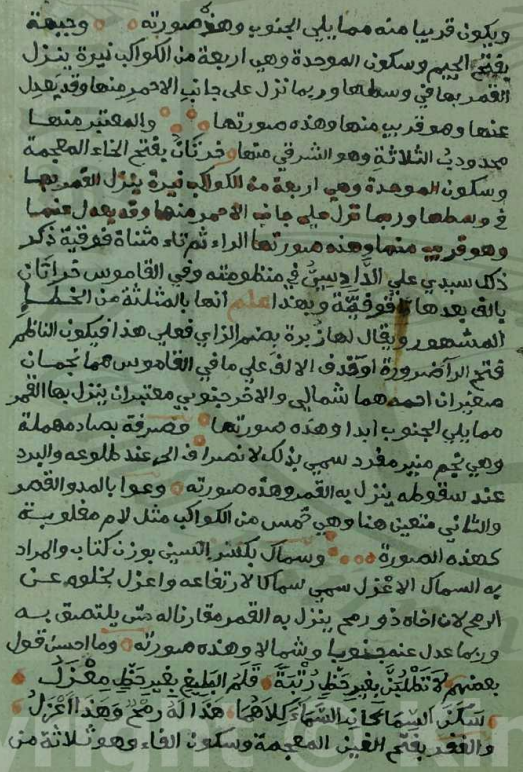 ويكون قريبا منه مما يلي الجنوب وهذه صورته وجبهة
بفتح الجيم وسكون الموحدة وهي اربعة من الكواكب نيرة ينزل
القمر بها في وسطها وربما نزل على جانب الاحمر منها وقد يعدل
عنها وهو قريب منها وهذه صورتها والمعتبر منها
محدودب الثلاثة وهو الشرقي منها وخرتان بفتح الخاء المعجمة
وسكون الموحدة وهي اربعة من الكواكب نيرة ينزل القمر بها
في وسطها وربما نزل على جانب الاحمر منها وقد يعدل عنها
وهو قريب منها وهذه صورتها الراء ثم تاء مثناة فوقية ذكر
ذلك سيدي علي الدادسي في منظومته وفي القاموس خراتان
بالف بعدها فوقية وبهذا علم انها بالمثلثة من الخطا
المشهور ويقال لها زبرة بضم الزاي فعلى هذا فيكون الناظم
فتح الرا ضرورة او حذف الالف على ما في القاموس هما نجمان
صغيران احدهما شمالي والاخر جنوبي معتبران ينزل بها القمر
مما يلي الجنوب ابدا وهذه صورتها وصرفة بصاد مهملة
وهي نجم منير مفرد سمي بذلك لانصراف الحر عند طلوعه والبرد
عند سقوطه ينزل به القمر وهذه صورته وعوا بالمد والقصر
والثاني متعين هنا وهي خمس من الكواكب مثل لام مقلوبة
كهذه الصورة وسماك بكسر السين بوزن كتاب والمراد
به السماك الاعزل سمي سماكا لارتفاعه واعزل لخلوه عن
الرمح لان اخاه ذو رمح ينزل به القمر مقارنا له حتى يلتصق به
وربما عدل عنه جنوبا وشمالا وهذه صورته وما احسن قول
بعضهم لا تطلبن بغير حظ رتبة قلم البليغ بغير حظ مغزل
سكن السماكان السماء كلاهما هذا له رمح وهذا اعزل
والغفر بفتح الغين المعجمة وسكون الفاء وهو ثلاثة من